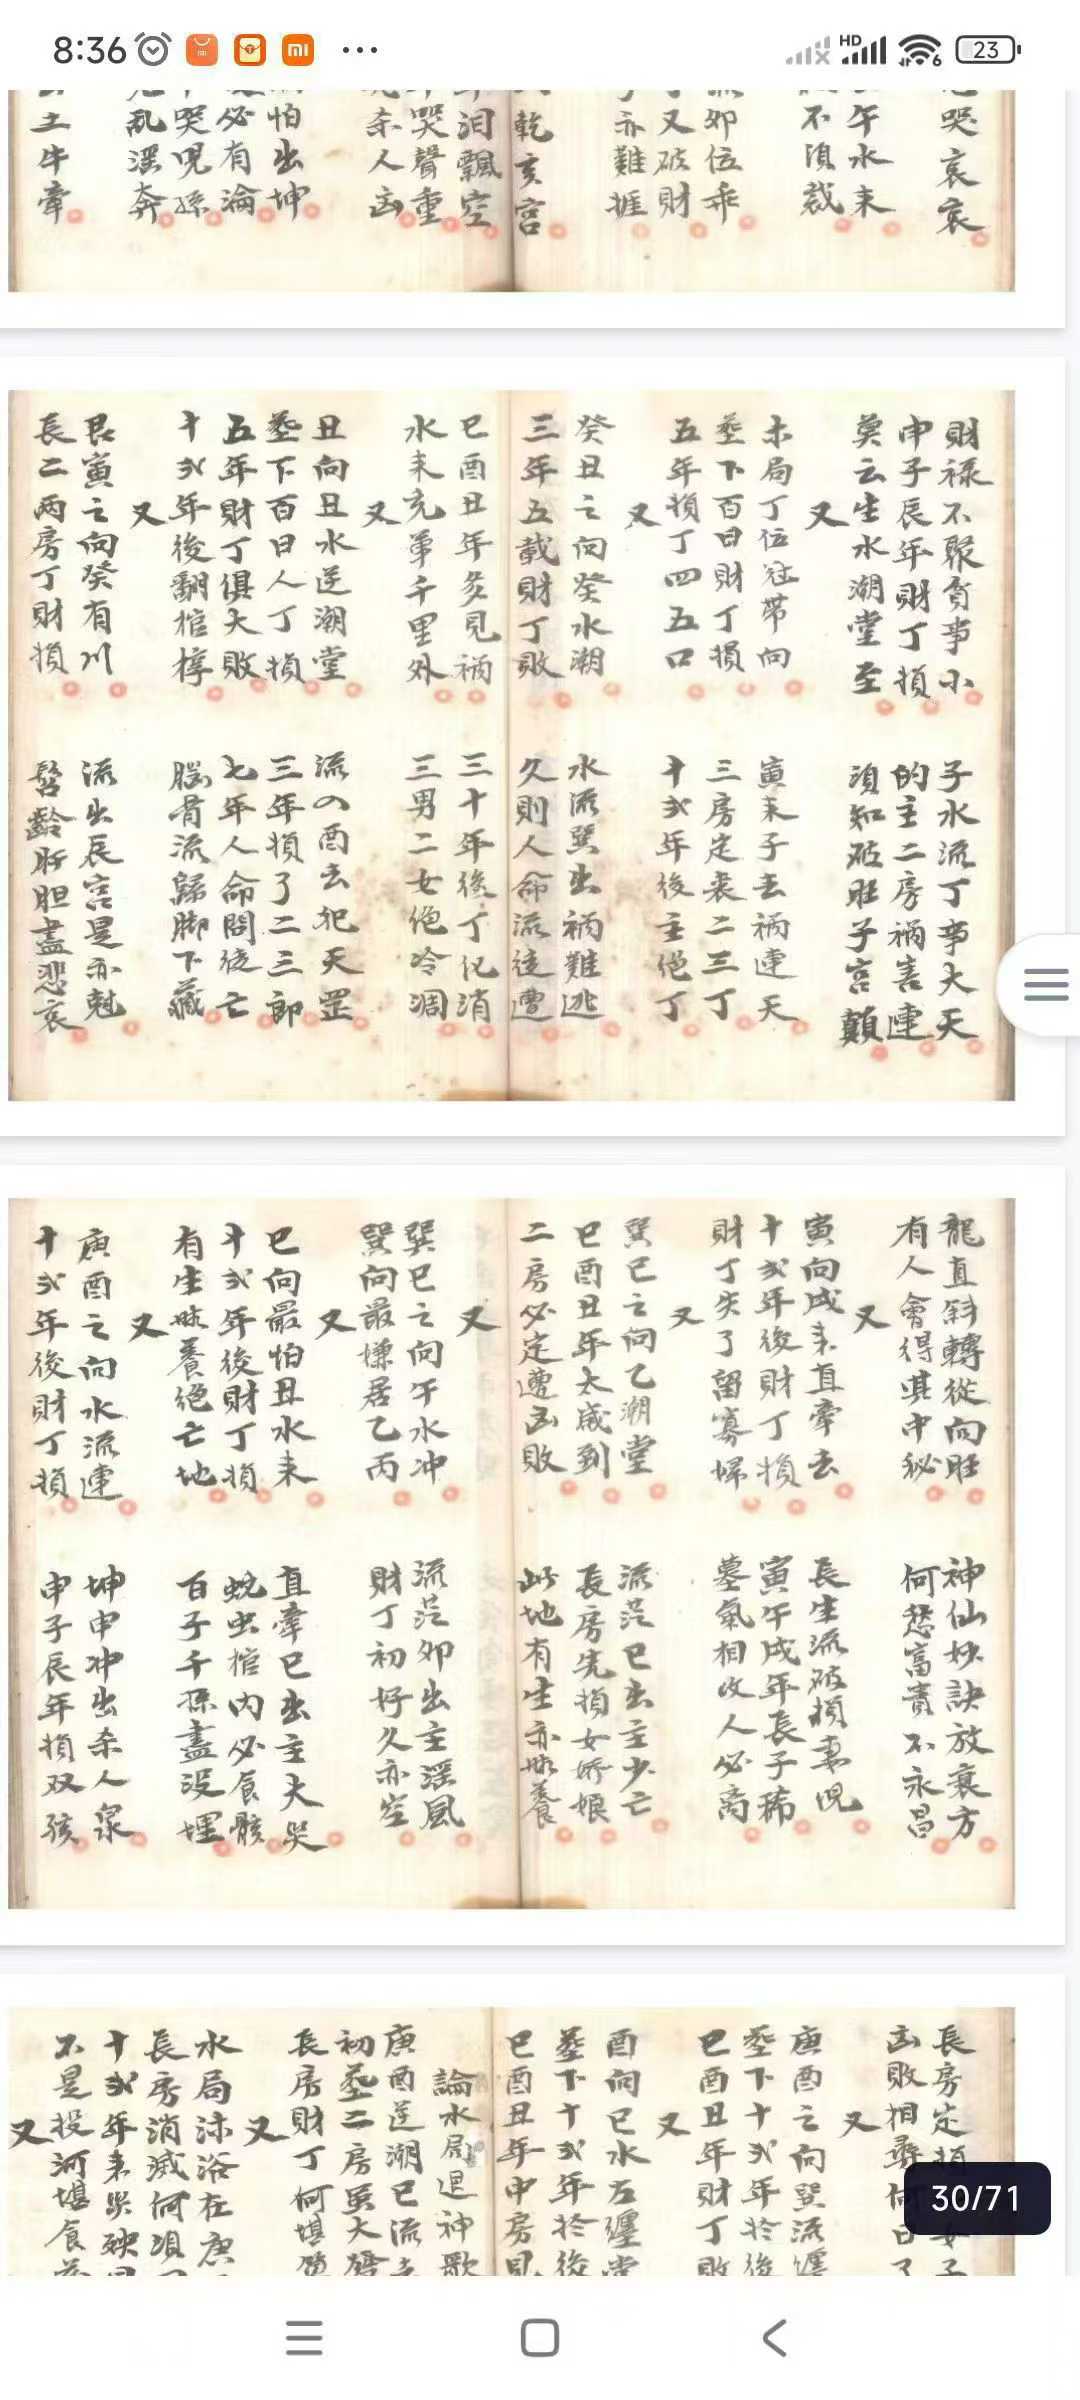 8:36
HD
6
23
哭哀哀
午水来
不須裁
卯位乖
又破財
亦難捱
乾亥宮
泪飄空
哭聲重
杀人凶
怕出坤
必有淪
哭兒孫
乱淫奔
土牛牽
財禄不聚貧事小
子水流丁事大天
申子辰年財丁損
的主二房禍害連
莫云生水潮堂至
須知破旺子宮顛
又
未局丁位冠帶向
寅来子去禍連天
塟下百日財丁損
三房定衰二三丁
五年損丁四五口
十弍年後主絶丁
又
癸丑之向癸水潮
水流巽出禍難逃
三年五載財丁敗
久則人命流徒遭
巳酉丑年多見禍
三十年後丁化消
水来充軍千里外
三男二女絶冷凋
又
丑向丑水逆潮堂
流入酉去犯天罡
塟下百日人丁損
三年損了二三郎
五年財丁俱大敗
七年人命問徒亡
十弍年後翻棺槨
腦骨流歸脚下藏
又
艮寅之向癸有川
流出辰宮是亦尅
長二兩房丁財損
髫齡肝胆盡悲哀
龍直斜轉從向旺
神仙妙訣放衰方
有人會得其中秘
何愁富貴不永昌
又
寅向戌来直牽去
長生流破損妻兒
十弍年後財丁損
寅午戌年長子稀
財丁失了留寡婦
墓氣相收人必离
又
巽巳之向乙潮堂
流茫巳出主少亡
巳酉丑年太歲到
長房先損女嬌娘
二房必定遭凶敗
此地有生亦难養
又
巽巳之向午水冲
流茫卯出主淫風
巽向最嫌居乙丙
財丁初好久亦空
又
巳向最怕丑水来
直牽巳出主大哭
十弍年後財丁損
蛇虫棺内必食骸
有生难養絶亡地
百子千孫盡没埋
又
庚酉之向水流連
坤申冲出杀人泉
十弍年後財丁損
申子辰年損双孩
長房定損
凶敗相尋何日了
又
庚酉之向巽流
塟下十弍年於後
巳酉丑年財丁敗
又
酉向巳水左纏
塟下十弍年於後
巳酉丑年中房見
論水局退神歌
庚酉逆潮巳流去
初塟二房虽大
長房財丁何堪
又
水局沐浴在庚
長房消滅何須
十弍年来災殃
不是投河堪食
又
30/71